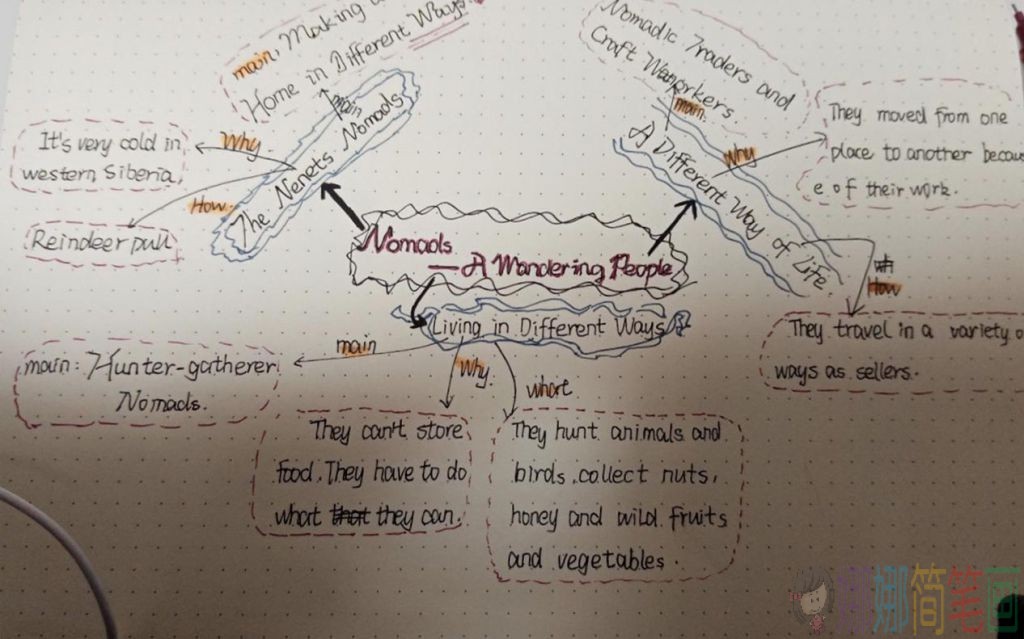 main, Making a
Home in Different Ways.
main
The Nenets Nomads
Why
It's very cold in
western Siberia,
How.
Reindeer pull
Nomadic Traders and
Craft Workers
main.
A Different Way of Life.
Why
They moved from one
place to another becau
e of their work.
How
They travel in a variety o
ways as sellers.
Nomads
—A Wandering People
Living in Different Ways
main
main: Hunter-gatherer
Nomads.
Why.
They can't store
food. They have to do
what that they can.
what
They hunt animals and
birds, collect nuts,
honey and wild fruits
and vegetables.
娜简笔画